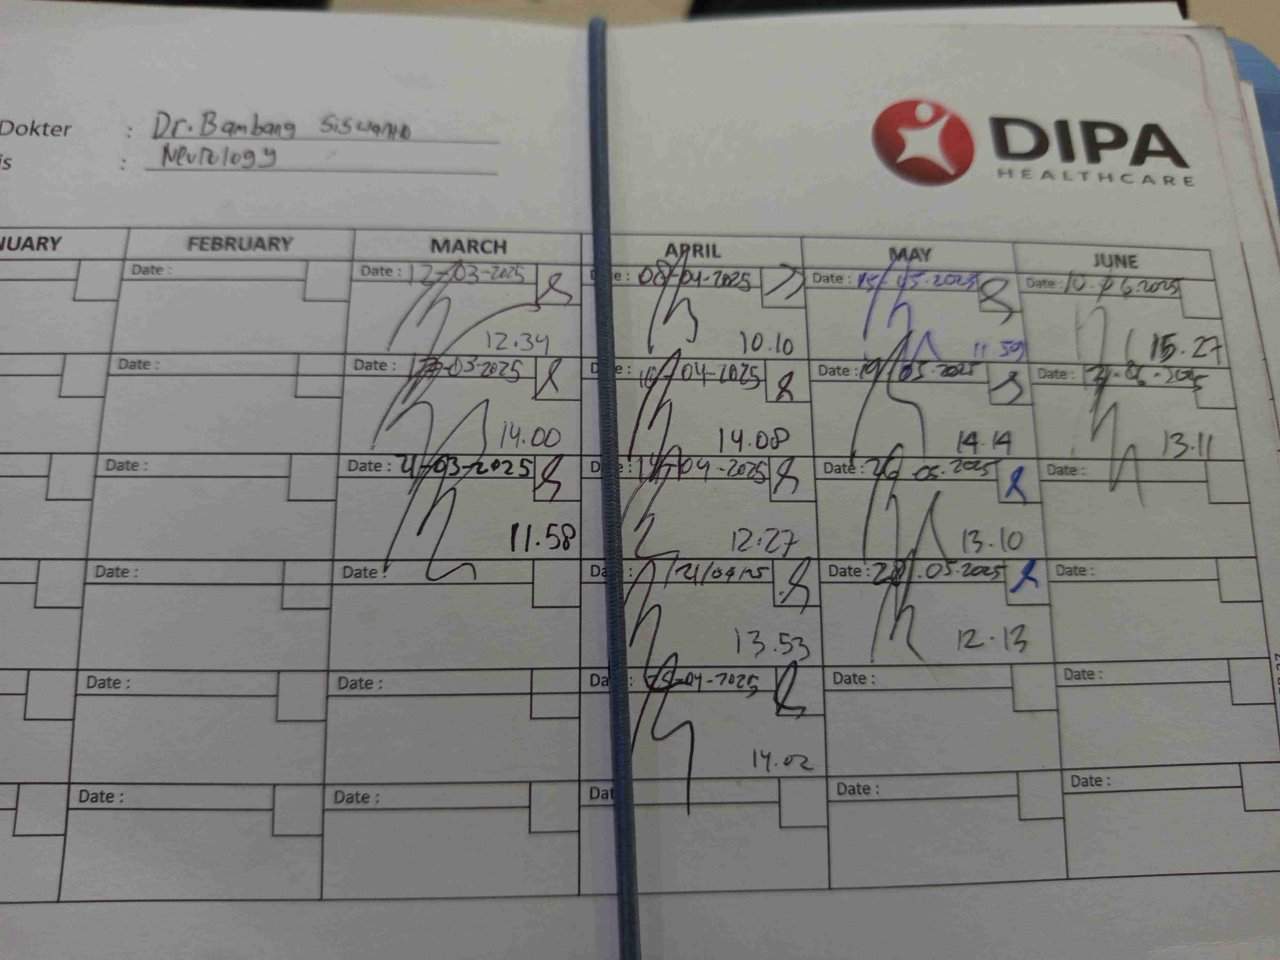 Dokter : Dr. Bambang Siswanto
is : Neurology
DIPA
HEALTHCARE
NUARY FEBRUARY MARCH APRIL MAY JUNE
Date : Date : 12-03-2025 e : 08-04-2025 Date : 15-05-2025 Date : 10-06-2025
12.34 10.10 11.59 15.27
Date : Date : -03-2025 e : -04-2025 Date : 19/05.2025 Date : -06-2025
14.00 14.08 14.14 13.11
Date : Date : 21-03-2025 -04-2025 Date : 26.05.2025 Date :
11.58 12:27 13.10
Date : Date : Da 21/04/25 Date : .05.2025 Date :
13.53 12.13
Date : Date : Da e : -04-2025 Date : Date :
14.02
Date : Date : Dat Date : Date :